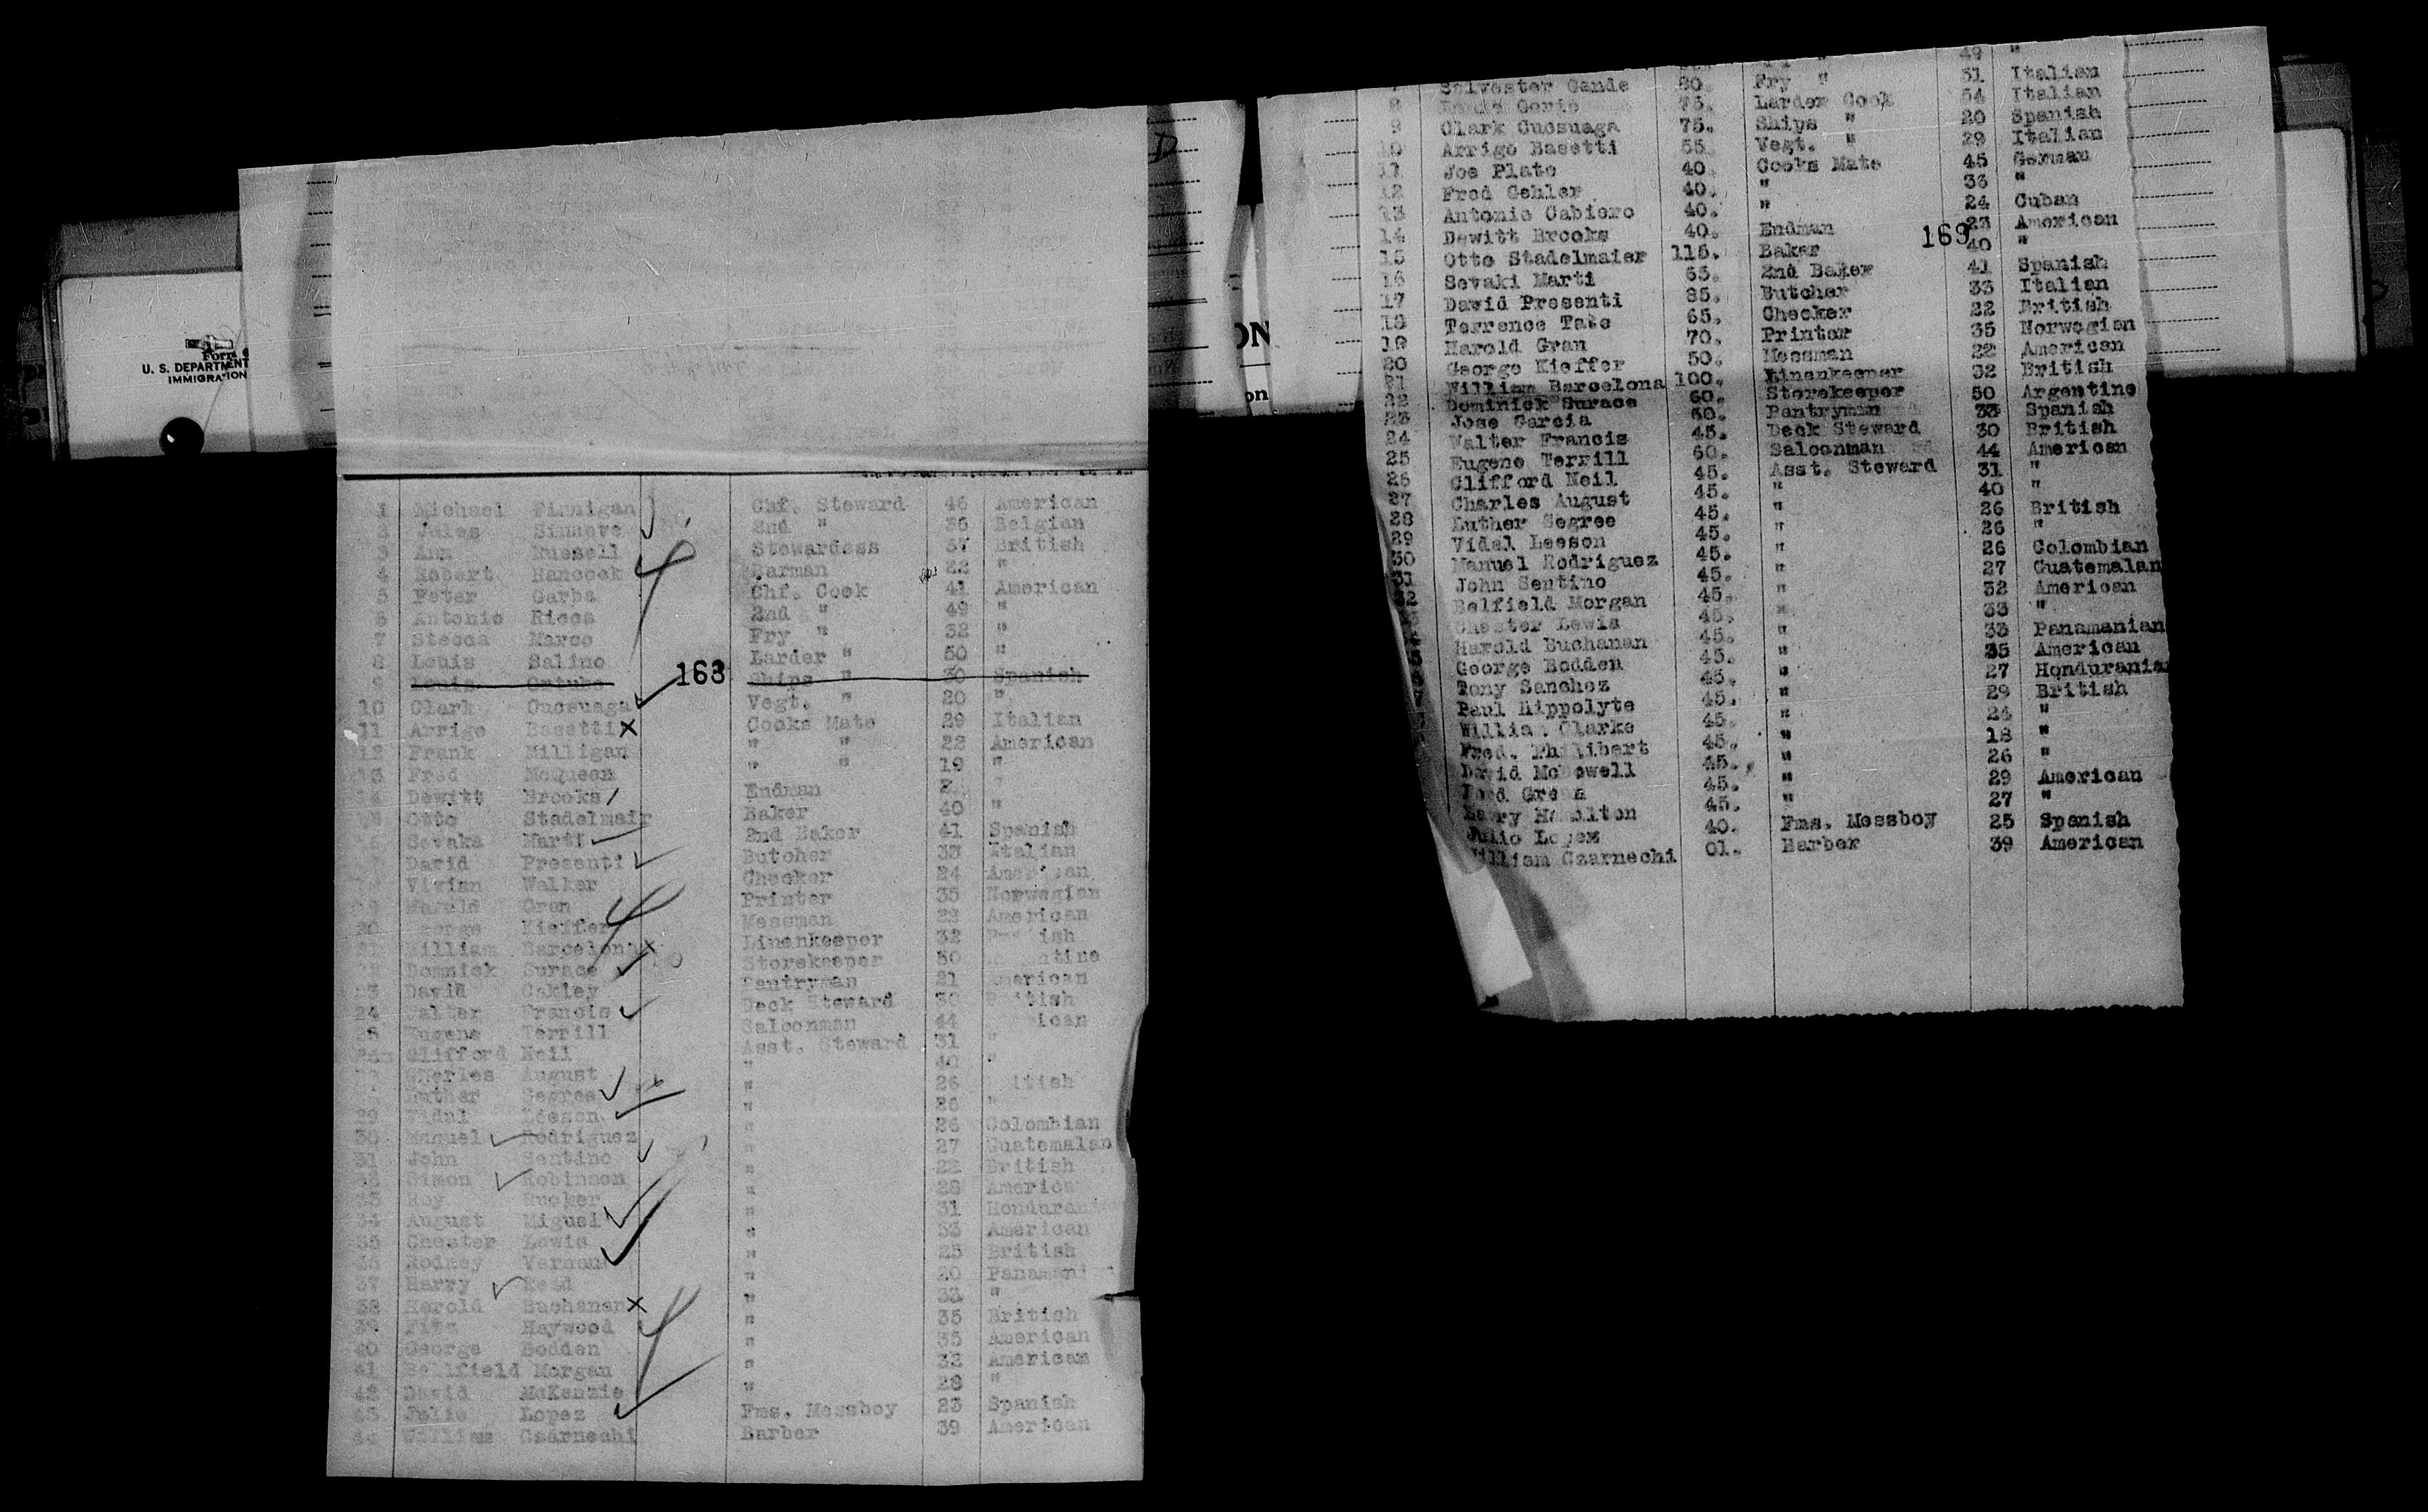 Form
U. S. DEPARTMENT
IMMIGRATION
D
ON
on
1 Michael Finnigan Chf. Steward 46 American
2 Jules Sinnove 2nd " 36 Belgian
3 Ann Russell Stewardess 37 British
4 Robert Hancock Barman 22 "
5 Peter Garba Chf. Cook 41 American
6 Antonio Ricca 2nd " 49 "
7 Stecca Marco Fry " 32 "
8 Louis Salino Larder " 50 "
9 Louis Ships " 30 Spanish
163
10 Clark Cucsuaga Vegt. " 20 "
11 Arrigo Basetti Cooks Mate 29 Italian
12 Frank Milligan " " 22 American
13 Fred McQueen " " 19 "
14 Dewitt Brooks Endman "
15 Otto Stadelmair Baker 40 "
Sevaka Marti 2nd Baker 41 Spanish
David Presenti Butcher 33 Italian
Vivian Walker Checker 24 American
19 Harold Gran Printer 35 Norwegian
20 George Kieffer Messman 22 American
21 William Barcelona Linenkeeper 32 ish
22 Domnick Surace Storekeeper 50 ntine
23 David Oakley Pantryman 21 American
24 Walter Francis Deck Steward 30 British
25 Eugene Terrill Saloonman 44 ican
Clifford Neil Asst. Steward 31 "
Charles August " 40 "
Luther Segree " 26 itish
29 Vidal Leeson " 26 "
30 Manuel Rodriguez " 26 Colombian
31 John Sentino " 27 Guatemalan
32 Simon Robinson " 22 British
33 Roy Rucker " 28 America
34 August Miguel " 31 Hondurani
35 Chester Lewis " 33 American
36 Rodney Vernon " 25 British
37 Harry Reid " 20 Panamani
38 Harold Buchanan " 33 "
39 Fitz Haywood " 35 British
40 George Bodden " 35 American
41 Bellfield Morgan " 32 American
42 David McKenzie " 28 "
43 Julio Lopez Fms. Messboy 23 Spanish
44 William Czarnechi Barber 39 American
49 "
7 Sylvester Gande 80. Fry " 31 Italian
8 Louis Gorio 75. Larder Cook 54 Italian
9 Clark Cucsuaga 75. Ships " 20 Spanish
10 Arrigo Basetti 55. Vegt. " 29 Italian
11 Joe Plate 40. Cooks Mate 45 German
12 Fred Gehler 40. " 33 "
13 Antonio Cabiero 40. " 24 Cuban
14 Dewitt Brooks 40. Endman 23 American
169
15 Otto Stadelmaier 115. Baker 40 "
16 Sevaki Marti 65. 2nd Baker 41 Spanish
17 David Presenti 85. Butcher 33 Italian
18 Terrence Tate 65. Checker 22 British
19 Harold Gran 70. Printer 35 Norwegian
20 George Kieffer 50. Messman 22 American
21 William Barcelona 100. Linenkeeper 32 British
22 Dominick Surace 60. Storekeeper 50 Argentine
23 Jose Garcia 50. Pantryman 33 Spanish
24 Walter Francis 45. Deck Steward 30 British
25 Eugene Terrill 60. Saloonman 44 American
26 Clifford Neil 45. Asst. Steward 31 "
27 Charles August 45. " 40 "
28 Luther Segree 45. " 26 British
29 Vidal Leeson 45. " 26 "
30 Manuel Rodriguez 45. " 26 Colombian
31 John Sentino 45. " 27 Guatemalan
32 Belfield Morgan 45. " 32 American
Chester Lewis 45. " 33 "
Harold Buchanan 45. " 33 Panamanian
George Bodden 45. " 35 American
Tony Sanchez 45. " 27 Honduranian
Paul Hippolyte 45. " 29 British
William Clarke 45. " 24 "
Fred. Philibert 45. " 18 "
David McDowell 45. " 26 "
Green 45. " 29 American
Harry Hamilton 45. " 27 "
Julio Lopez 40. Fms. Messboy 25 Spanish
William Czarnechi 01. Barber 39 American